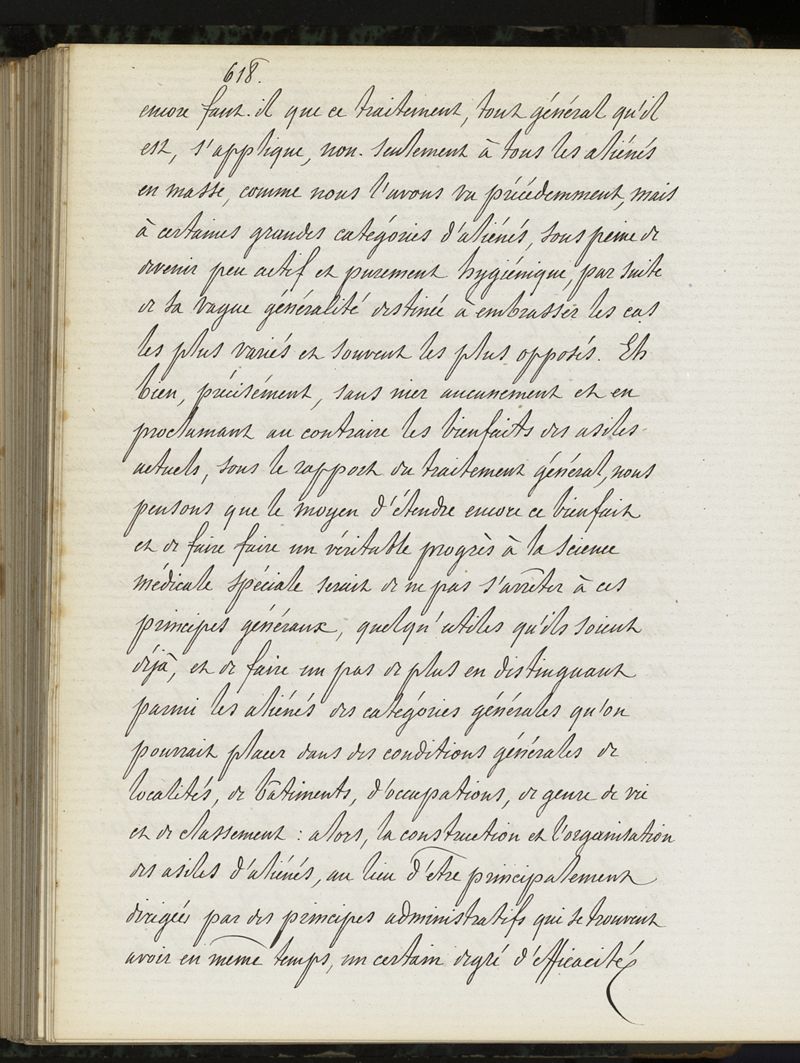 618.
encore faut-il que ce traitement, tout général qu'il
est, s'applique, non-seulement à tous les aliénés
en masse, comme nous l'avons vu précédemment, mais
à certaines grandes catégories d'aliénés, sous peine de
devenir peu actif et purement hygiénique, par suite
de sa vague généralité destinée à embrasser les cas
les plus variés et souvent les plus opposés. Eh
bien, précisément, sans nier aucunement et en
proclamant au contraire les bienfaits des asiles
actuels, sous le rapport du traitement général, nous
pensons que le moyen d'étendre encore ce bienfait
et de faire faire un véritable progrès à la science
médicale spéciale serait de ne pas s'arrêter à ces
principes généraux, quelqu'utiles qu'ils soient
déjà, et de faire un pas de plus en distinguant
parmi les aliénés des catégories générales qu'on
pourrait placer dans des conditions générales de
localités, de bâtiments, d'occupations, de genre de vie
et de classement : alors, la construction et l'organisation
des asiles d'aliénés, au lieu d'être principalement
dirigées par des principes administratifs qui se trouvent
avoir en même temps, un certain degré d'efficacité